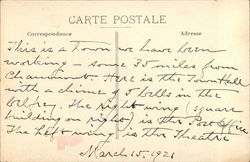 CARTE POSTALE
Correspondance Adresse
This is a town we have been
working – some 35 miles from
Chaumont. Here is the Town Hall
with a chime of 5 bells in the
belfry. The right wing (square
building on right) is the Post Office
The left wing is the Theatre
March 15, 1921